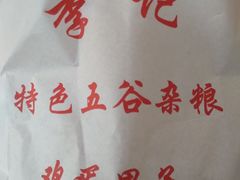 李记
特色五谷杂粮